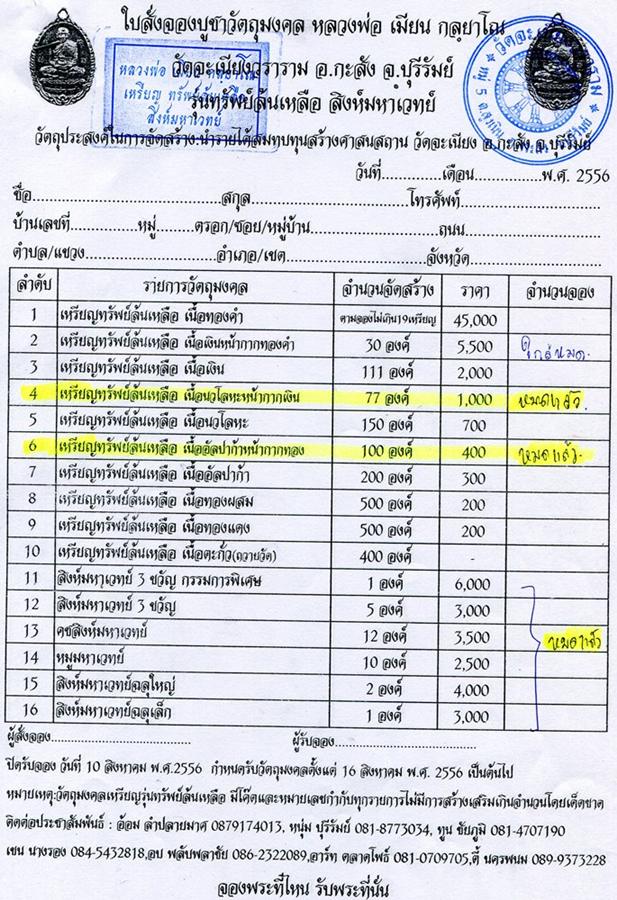 ใบสั่งจองบูชาวัตถุมงคล หลวงพ่อ เมียน กลฺยาโณ
วัดจะเนียงวราราม อ.กะสัง จ.บุรีรัมย์
รุ่นทรัพย์ล้นเหลือ สิงห์มหาเวทย์
หลวงพ่อ
เหรียญ ทรัพย์
สิงห์มหาเวทย์
วัตถุประสงค์ในการจัดสร้าง:นำรายได้สมทบทุนสร้างศาสนสถาน วัดจะเนียง อ.กะสัง จ.บุรีรัมย์
วันที่................เดือน..................พ.ศ. 2556
ชื่อ.....................................สกุล...............................โทรศัพท์...........................
บ้านเลขที่.............หมู่.........ตรอก/ซอย/หมู่บ้าน.........................ถนน...........................
ตำบล/แขวง..........................อำเภอ/เขต............................จังหวัด...........................
ลำดับ รายการวัตถุมงคล จำนวนจัดสร้าง ราคา จำนวนจอง
1 เหรียญทรัพย์ล้นเหลือ เนื้อทองคำ ตามจองไม่เกิน19เหรียญ 45,000
2 เหรียญทรัพย์ล้นเหลือ เนื้อเงินหน้ากากทองคำ 30 องค์ 5,500
3 เหรียญทรัพย์ล้นเหลือ เนื้อเงิน 111 องค์ 2,000
4 เหรียญทรัพย์ล้นเหลือ เนื้อนวโลหะหน้ากากเงิน 77 องค์ 1,000 หมดแล้ว
5 เหรียญทรัพย์ล้นเหลือ เนื้อนวโลหะ 150 องค์ 700
6 เหรียญทรัพย์ล้นเหลือ เนื้ออัลปาก้าหน้ากากทอง 100 องค์ 400 หมดแล้ว
7 เหรียญทรัพย์ล้นเหลือ เนื้ออัลปาก้า 200 องค์ 300
8 เหรียญทรัพย์ล้นเหลือ เนื้อทองผสม 500 องค์ 200
9 เหรียญทรัพย์ล้นเหลือ เนื้อทองแดง 500 องค์ 200
10 เหรียญทรัพย์ล้นเหลือ เนื้อตะกั่ว(ถวายวัด) 400 องค์ -
11 สิงห์มหาเวทย์ 3 ขวัญ กรรมการพิเศษ 1 องค์ 6,000
12 สิงห์มหาเวทย์ 3 ขวัญ 5 องค์ 3,000
13 คชสิงห์มหาเวทย์ 12 องค์ 3,500 หมดแล้ว
14 หมูมหาเวทย์ 10 องค์ 2,500
15 สิงห์มหาเวทย์ฉลุใหญ่ 2 องค์ 4,000
16 สิงห์มหาเวทย์ฉลุเล็ก 1 องค์ 3,000
ผู้สั่งจอง................................ ผู้รับจอง................................
ปิดรับจอง วันที่ 10 สิงหาคม พ.ศ.2556 กำหนดรับวัตถุมงคลตั้งแต่ 16 สิงหาคม พ.ศ. 2556 เป็นต้นไป
หมายเหตุ:วัตถุมงคลเหรียญรุ่นทรัพย์ล้นเหลือ มีโค๊ตและหมายเลขกำกับทุกรายการไม่มีการสร้างเสริมเกินจำนวนโดยเด็ดขาด
ติดต่อประชาสัมพันธ์ : อ้อม ลำปลายมาศ 0879174013, หนุ่ม บุรีรัมย์ 081-8773034, ทูน ชัยภูมิ 081-4707190
เชน นางรอง 084-5432818,อบ พลับพลาชัย 086-2322089,อาร์ท ตลาดโพธิ์ 081-0709705,ตี๋ นครพนม 089-9373228
จองพระที่ไหน รับพระที่นั่น